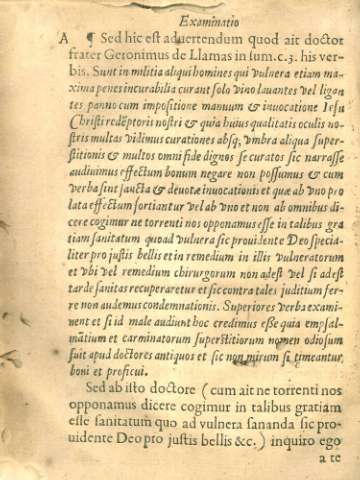 Examinatio
A ¶ Sed hic est aduertendum quod ait doctor
frater Geronimus de Llamas in sum.c.3. his ver-
bis. Sunt in militia aliqui homines qui vulnera etiam ma-
xima penes incurabilia curant solo vino lauantes vel ligan
tes panno cum impositione manuum & inuocatione Iesu
Christi redẽptoris nostri & quia huius qualitatis oculis no-
stris multas vidimus curationes absq; vmbra aliqua super-
stitionis & multos omni fide dignos se curatos sic narrasse
audiuimus effectum bonum negare non possumus & cum
verba sint sancta & deuotæ inuocationi et quæ ab vno pro
lata effectum sortiantur vel ab vno et non ab omnibus di-
cere cogimur ne torrenti nos opponamus esse in talibus gra
tiam sanitatum quoad vulnera sic prouidente Deo specia-
liter pro justis bellis et in remedium in illis vulneratorum
et vbi vel remedium chirurgorum non adest vel si adest
tarde sanitas recuperaretur et sic contra tales juditium fer-
re non audemus condemnationis. Superiores verba exami-
nent et si id male audiunt hoc credimus esse quia empsal-
matium et carminatorum superstitiorum nomen odiosum
fuit apud doctores antiquos et sic non mirum si timeantur
boni et proficui.
Sed ab isto doctore ( cum ait ne torrenti nos
opponamus dicere cogimur in talibus gratiam
esse sanitatum quo ad vulnera sananda sic pro-
uidente Deo pro justis bellis &c. ) inquiro ego
a te